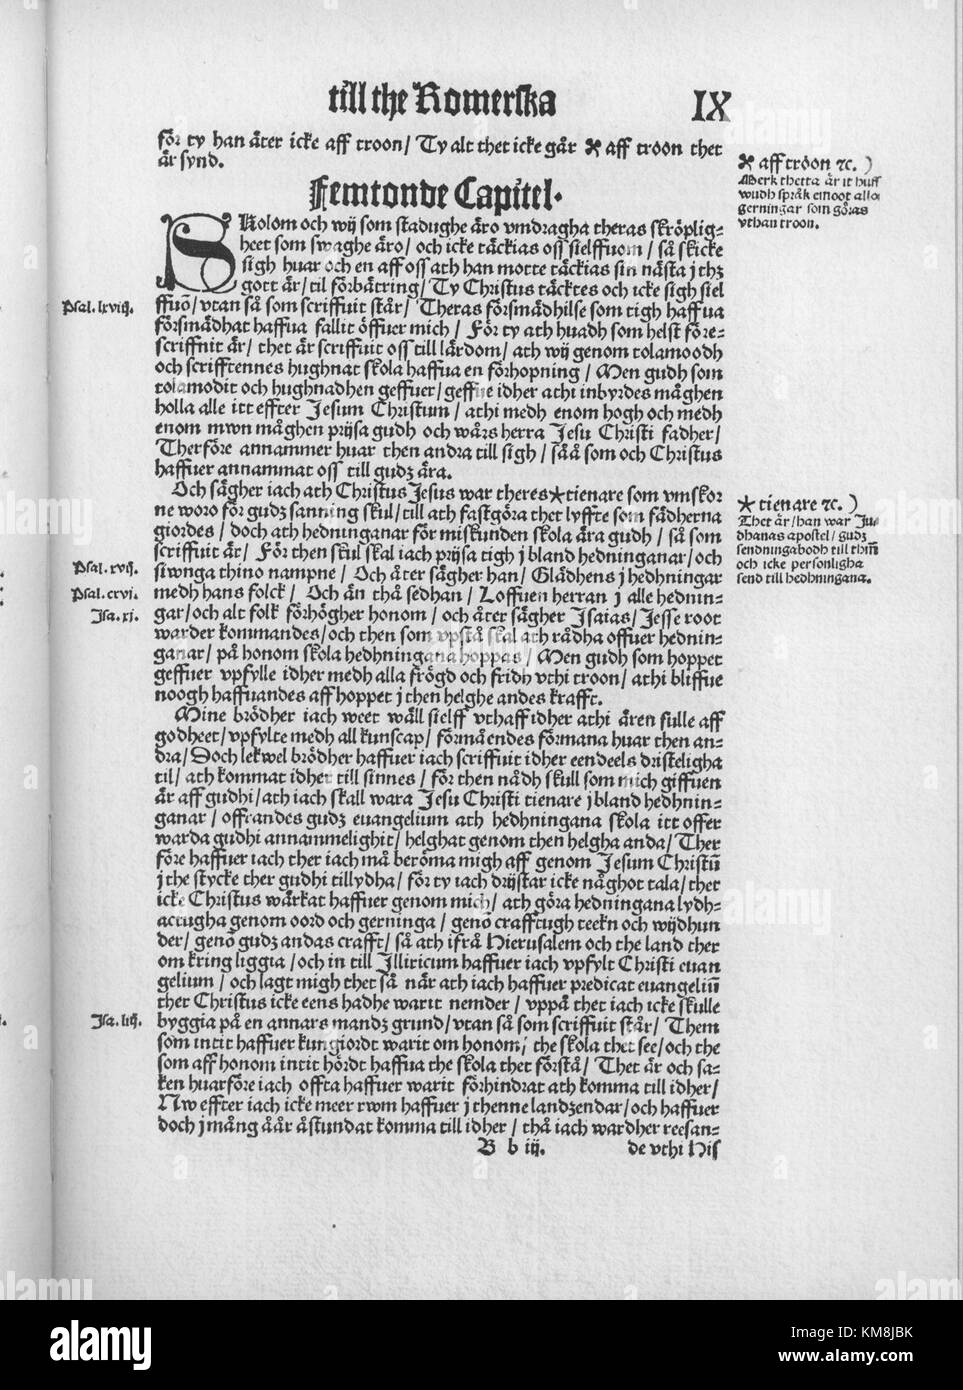 till the Romerska IX
för ty han äter icke aff troon / Ty alt thet icke går ✠ aff troon thet
är synd.
✠ aff tröon ꝛc. )
Merk thetta är it huff
wudh språk emoot alla
gerningar som göras
vthan troon.
Femtonde Capitel.
SKolom och wij som stadughe äro vmdragha theras skröplig=
heet som swaghe äro / och icke täckias oss sielffuom / så skicke
sigh huar och en aff oss ath han motte täckias sin nästa j thz
gott är / til förbätring / Ty Christus täcktes och icke sigh siel
Psal. lxviij.
ffuō / vtan så som scriffuit står / Theras försmädhilse som tigh haffua
försmädhat haffua fallit öffuer mich / För ty ath huadh som helst före=
scriffuit är / thet är scriffuit oss till lärdom / ath wij genom tolamoodh
och scrifftennes hughnat skola haffua en förhopning / Men gudh som
tolamodit och hughnadhen geffuer / geffue idher athi inbyrdes mäghen
holla alle itt effter Jesum Christum / athi medh enom hogh och medh
enom mwn mäghen prijsa gudh och wårs herra Jesu Christi fadher /
Therföre annammer huar then andra till sigh / såå som och Christus
haffuer annammat oss till gudz ära.
Och sägher iach ath Christus Jesus war theres ★ tienare som vmskor
ne woro för gudz sanning skul / till ath fastgöra thet lyffte som fädherna
giordes / doch ath hedninganar för miskunden skola ära gudh / så som
scriffuit är / För then skul skal iach prijsa tigh j bland hedninganar / och
★ tienare ꝛc. )
Thet är / han war Ju=
dhanas apostel / gudz
sendningabodh till thm̄
och icke personligha
send till hedhningana.
Psal. xvij.
siwnga thino nampne / Och åter sägher han / Glädhens j hedhningar
Psal. cxvi.
medh hans folck / Och än thå sedhan / Loffuen herran j alle hednin=
Isa. xi.
gar / och alt folk förhögher honom / och åter sägher Isaias / Jesse root
warder kommandes / och then som vpstå skal ath rådha offuer hednin=
ganar / på honom skola hedhningana hoppas / Men gudh som hoppet
geffuer vpfylle idher medh alla frögd och fridh vthi troon / athi bliffue
noogh haffuandes aff hoppet j then helghe andes krafft.
Mine brödher iach weet wäll sielff vthaff idher athi ären fulle aff
godheet / vpfylte medh all kunscap / förmåendes förmana huar then an=
dra / Doch lekwel brödher haffuer iach scriffuit idher eendeels dristeligha
til / ath kommat idher till sinnes / för then nådh skull som mich giffuen
är aff gudhi / ath iach skall wara Jesu Christi tienare j bland hedhnin=
ganar / offrandes gudz euangelium ath hedhningana skola itt offer
warda gudhi annammelighit / helghat genom then helgha anda / Ther
före haffuer iach ther iach må beröma migh aff genom Jesum Christū
j the stycke ther gudhi tillydha / för ty iach drijstar icke någhot tala / thet
icke Christus wärkat haffuer genom mich / ath göra hedningana lydh=
actugha genom oord och gerninga / genō crafftugh teekn och wijdhun
der / genō gudz andas crafft / så ath ifrå Hierusalem och the land ther
om kring liggia / och in till Illiricum haffuer iach vpfylt Christi euan
gelium / och lagt migh thet så när ath iach haffuer predicat euangeliū
ther Christus icke eens hadhe warit nemder / vppå thet iach icke skulle
Isa. liij.
byggia på en annars mandz grund / vtan så som scriffuit står / Them
som intit haffuer kungiordt warit om honom / the skola thet see / och the
som aff honom intit hördt haffua the skola thet förstå / Thet är och sa=
ken huarföre iach offta haffuer warit förhindrat ath komma till idher /
Nw effter iach icke meer rwm haffuer j thenne landzendar / och haffuer
doch j mång åår åstundat komma till idher / thå iach wardher reesan=
B b iij. de vthi His
alamy
KM8JBK
www.alamy.com